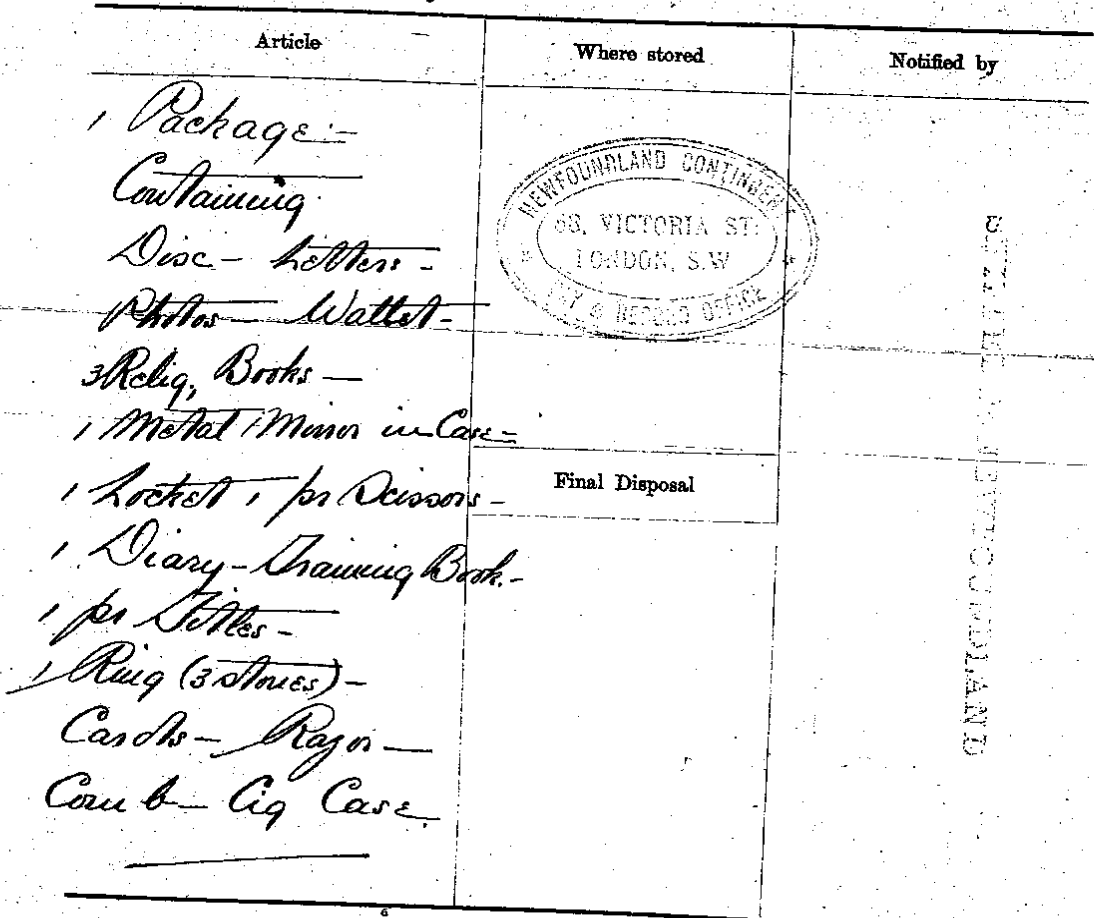 Article
Where stored
Notified by
1 Package :-
Containing
Disc - Letters -
Photos - Wallet -
3 Relig. Books -
1 Metal Mirror in Case -
1 Locket 1 pr Scissors -
1 Diary - Training Book. -
1 pr Titles -
1 Ring (3 stones) -
Cards - Razor -
Comb - Cig Case.
NEWFOUNDLAND CONTINGENT
58, VICTORIA ST:
LONDON, S.W
PAY & RECORD OFFICE
Final Disposal
NEWFOUNDLAND